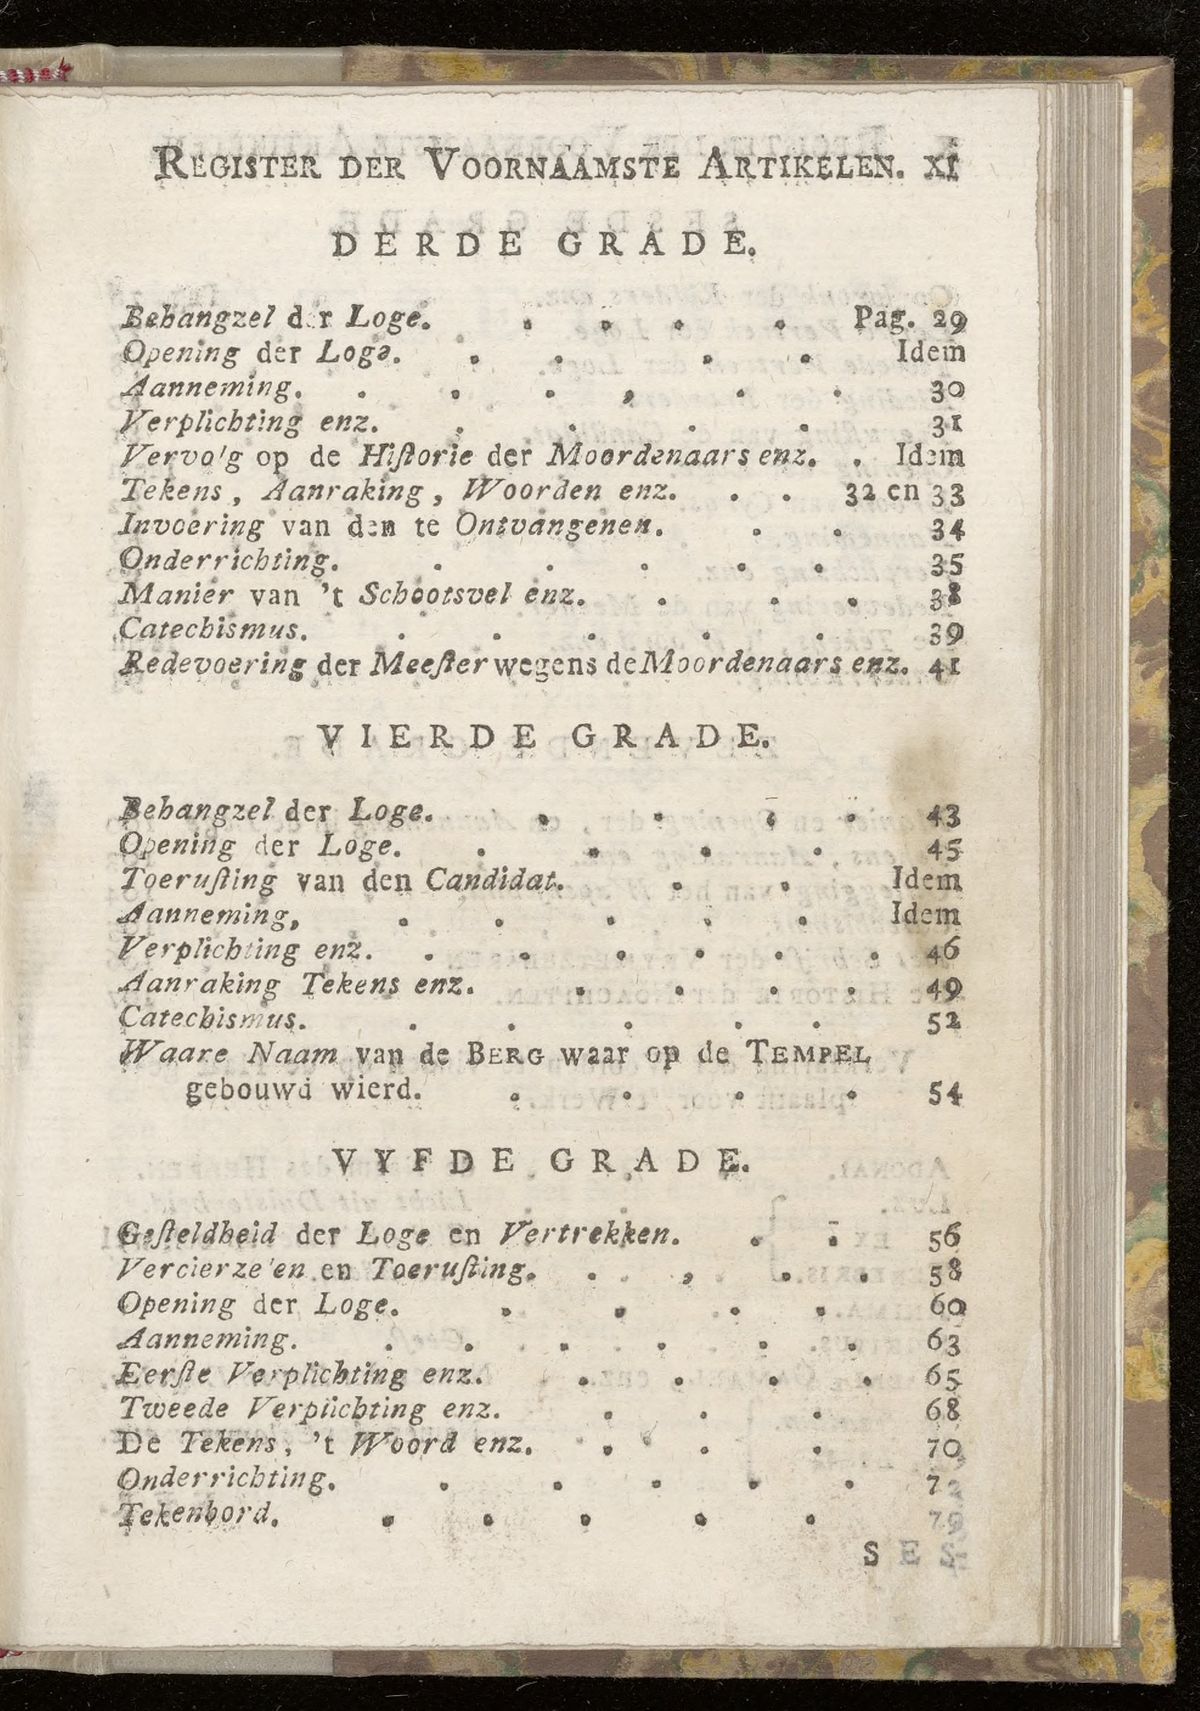 REGISTER DER VOORNAAMSTE ARTIKELEN. XI
DERDE GRADE.
Behangzel der Loge. . . . . Pag. 29
Opening der Loge. . . . . Idem
Aanneming. . . . , . . 30
Verplichting enz. . . . . 31
Vervo'g op de Hiſtorie der Moordenaars enz. . Idem
Tekens, Aanraking, Woorden enz. . . 32 en 33
Invoering van den te Ontvangenen. . . 34
Onderrichting. . . . . . 35
Manier van 't Schootsvel enz. . . . 38
Catechismus. . . . . . 39
Redevoering der Meeſter wegens de Moordenaars enz. 41
VIERDE GRADE.
Behangzel der Loge. . . . . 43
Opening der Loge. . . . . 45
Toeruſting van den Candidat. . . Idem
Aanneming, . . . . . Idem
Verplichting enz. . . . . . . 46
Aanraking Tekens enz. . . . . 49
Catechismus. . . . . . 52
Waare Naam van de BERG waar op de TEMPEL
gebouwd wierd. . . . . 54
VYFDE GRADE.
Geſteldheid der Loge en Vertrekken. . . 56
Vercierze'en en Toeruſting. . , . . 58
Opening der Loge. . . . . 60
Aanneming. . . . . . . 63
Eerſte Verplichting enz. . . . . 65
Tweede Verplichting enz. . . . 68
De Tekens, 't Woord enz. . . . 70
Onderrichting. . . . . . 7
Tekenbord. . . . . . 79
SES